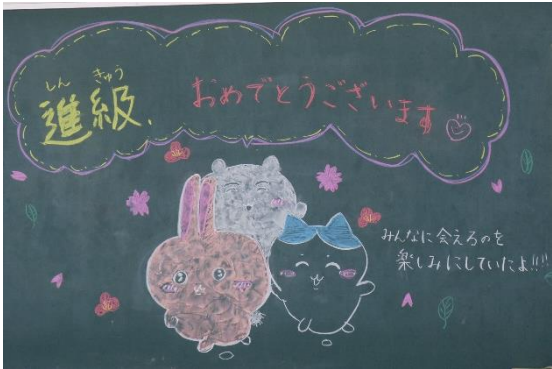 しん きゅう
進級、おめでとうございます
みんなに会えるのを
楽しみにしていたよ!!!